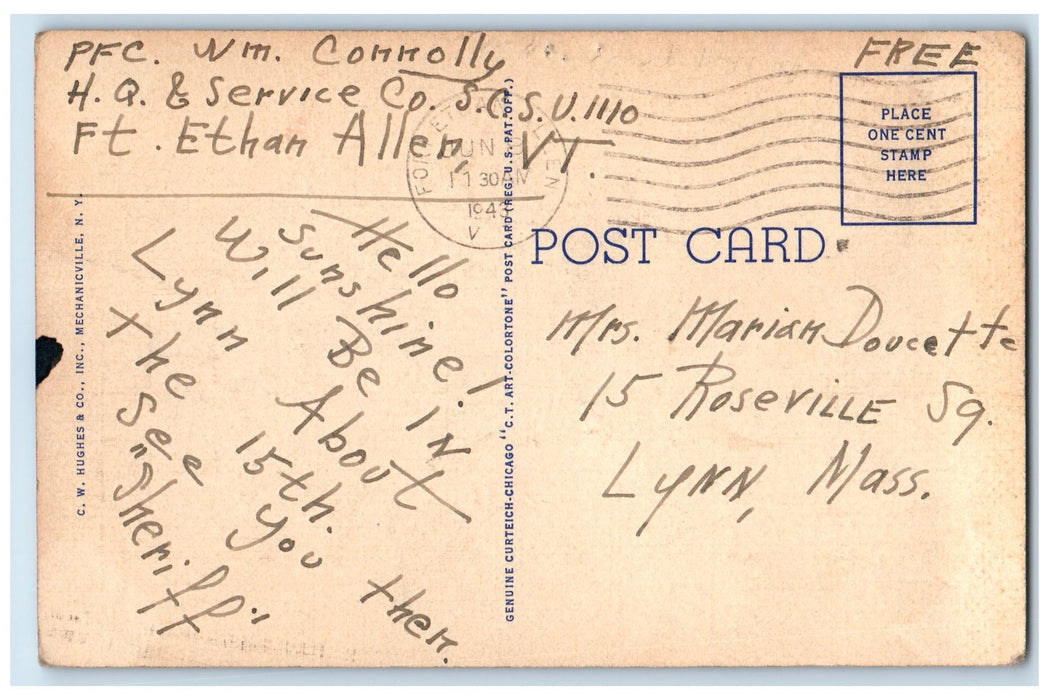 PFC. Wm. Connolly
H.Q. & Service Co. S.C.S.U. 1110
Ft. Ethan Allen, VT.
FREE
PLACE
ONE CENT
STAMP
HERE
11 30 AM
POST CARD
Mrs. Marian Doucette
15 Roseville Sq.
Lynn, Mass.
Hello
Sunshine!
Will Be IN
Lynn About
the 15th.
See you then.
"Sheriff"
C. W. HUGHES & CO., INC., MECHANICVILLE, N. Y.
GENUINE CURTEICH-CHICAGO "C.T. ART-COLORTONE" POST CARD (REG. U.S. PAT. OFF.)